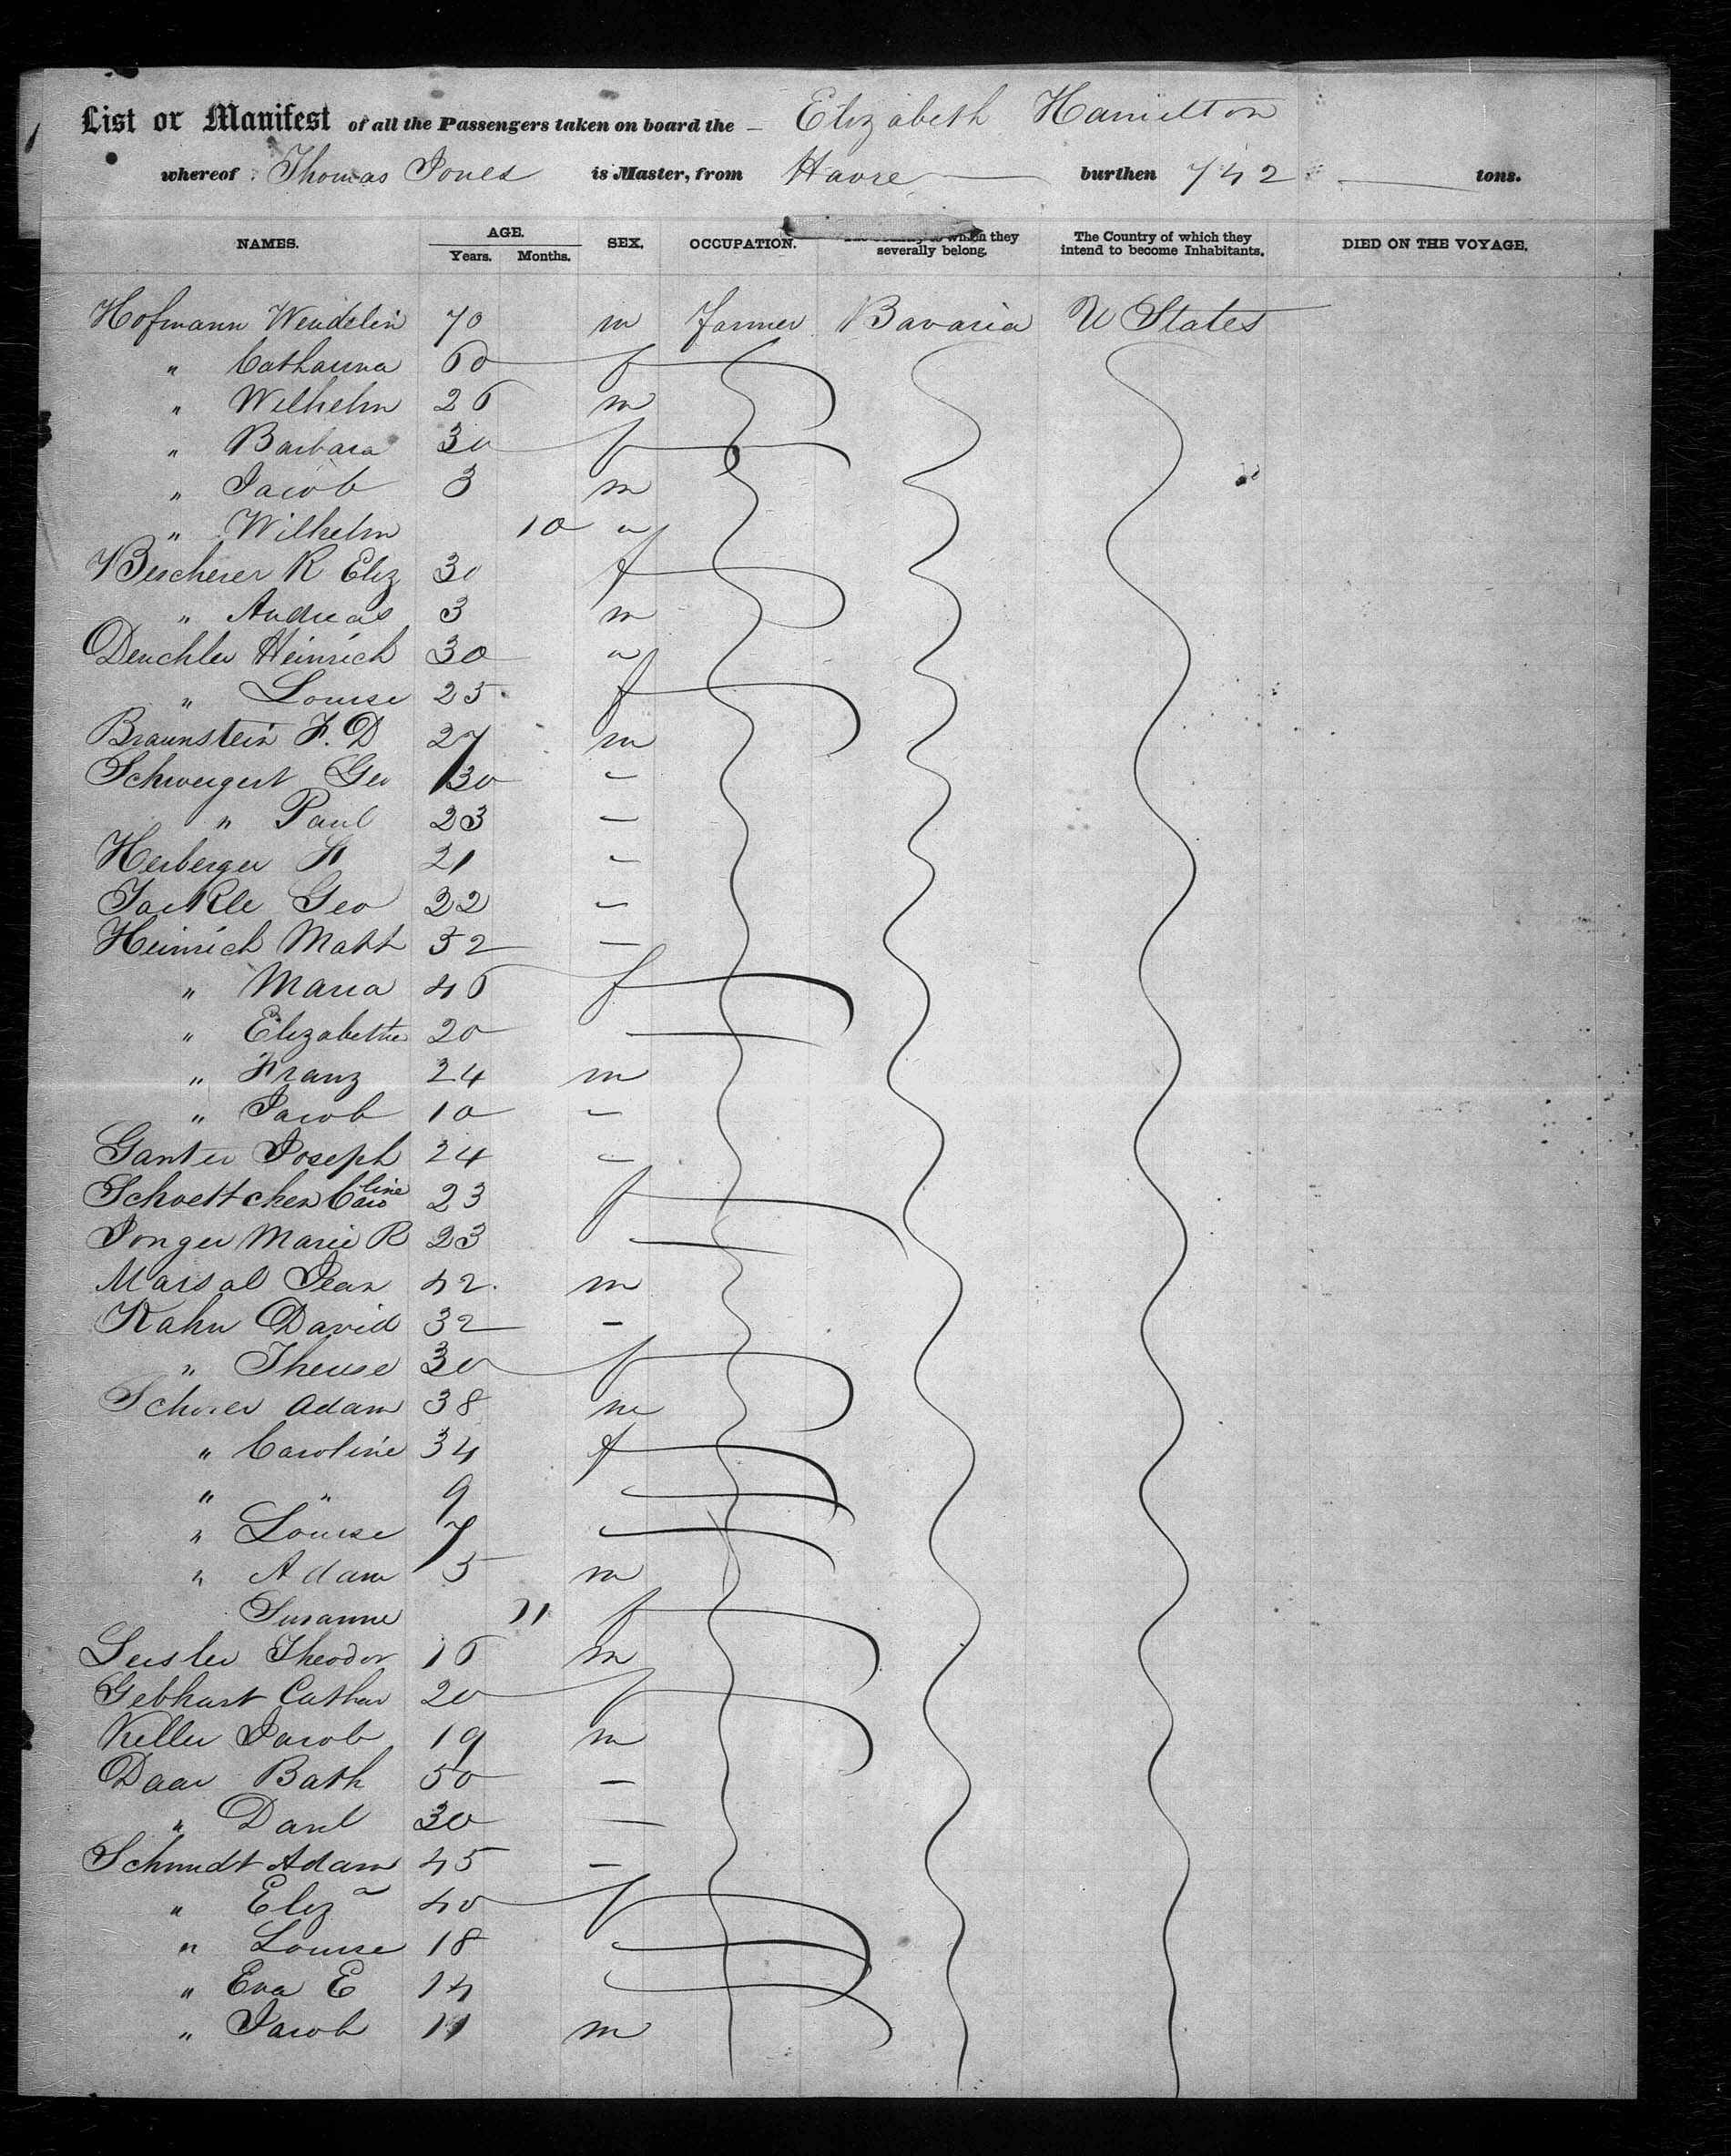 List or Manifest of all the Passengers taken on board the Elizabeth Hamilton
whereof Thomas Jones is Master, from Havre burthen 742 tons.
NAMES. AGE. Years. Months. SEX. OCCUPATION. which they severally belong. The Country of which they intend to become Inhabitants. DIED ON THE VOYAGE.
Hofmann Wendelin 70 m farmer Bavaria U States
" Catharina 60 f
" Wilhelm 26 m
" Barbara 30 f
" Jacob 3 m
" Wilhelm 10 "
Bescherer R Eliz 30 f
" Andreas 3 m
Deuchler Heinrich 30 "
" Louise 25 f
Braunstein F. D 27 m
Schweigert Geo 30 -
" Paul 23 -
Herberger H 21 -
Jackle Geo 22 -
Heinrich Math 52 -
" Maria 46 f
" Elizabetha 20 -
" Franz 24 m
" Jacob 10 -
Ganter Joseph 24 -
Schoettchen Caroline 23 f
Jonger Marie R 23 -
Marsal Jean 42 m
Kahn David 32 -
" Therese 30 f
Scherer Adam 38 m
" Caroline 34 f
" " 9 -
" Louise 7 -
" Adam 5 m
Susanne 11 f
Leisler Theodor 16 m
Gebhart Cathar 20 f
Keller Jacob 19 m
Daar Bath 50 -
" Danl 30 -
Schmidt Adam 45 -
" Eliza 40 f
" Louise 18 -
" Eva E 14 -
" Jacob 11 m